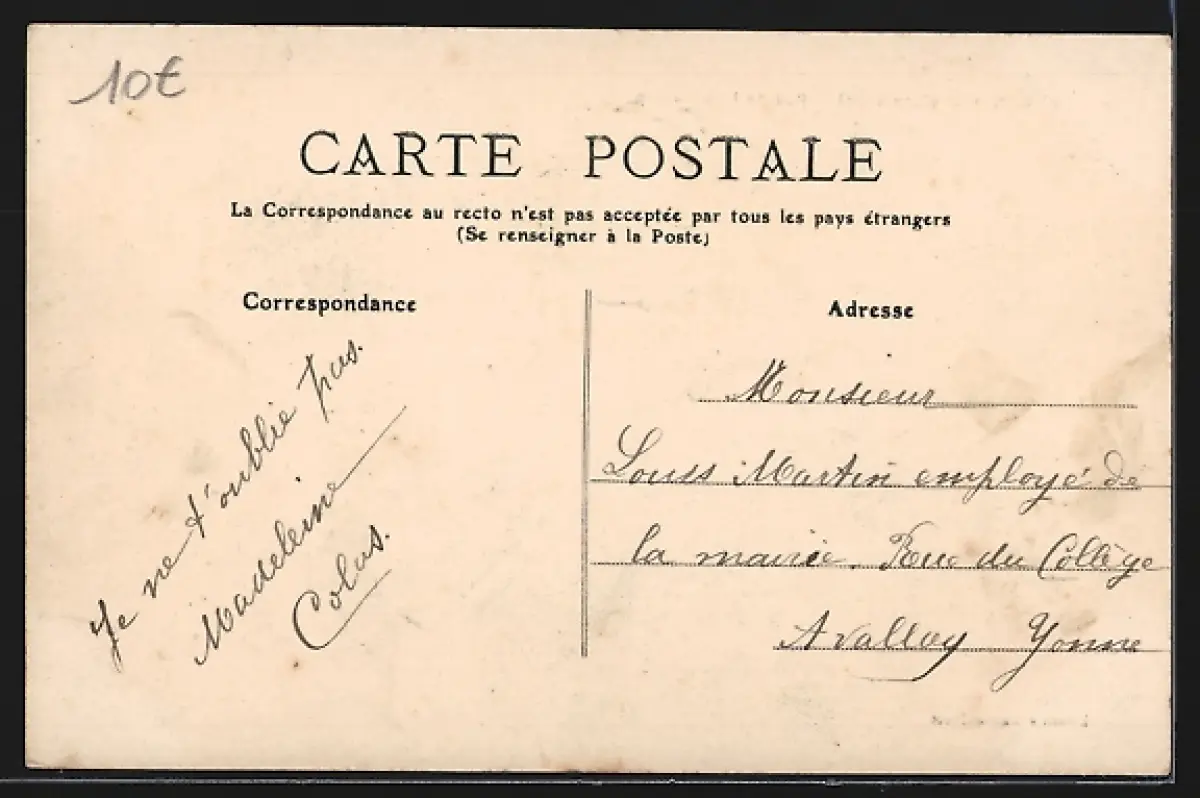 10€
CARTE POSTALE
La Correspondance au recto n'est pas acceptée par tous les pays étrangers
(Se renseigner à la Poste)
Correspondance
Je ne t'oublie pas.
Madeleine
Colas.
Adresse
Monsieur
Louis Martin employé de
la mairie. Rue du Collège
Avallon Yonne